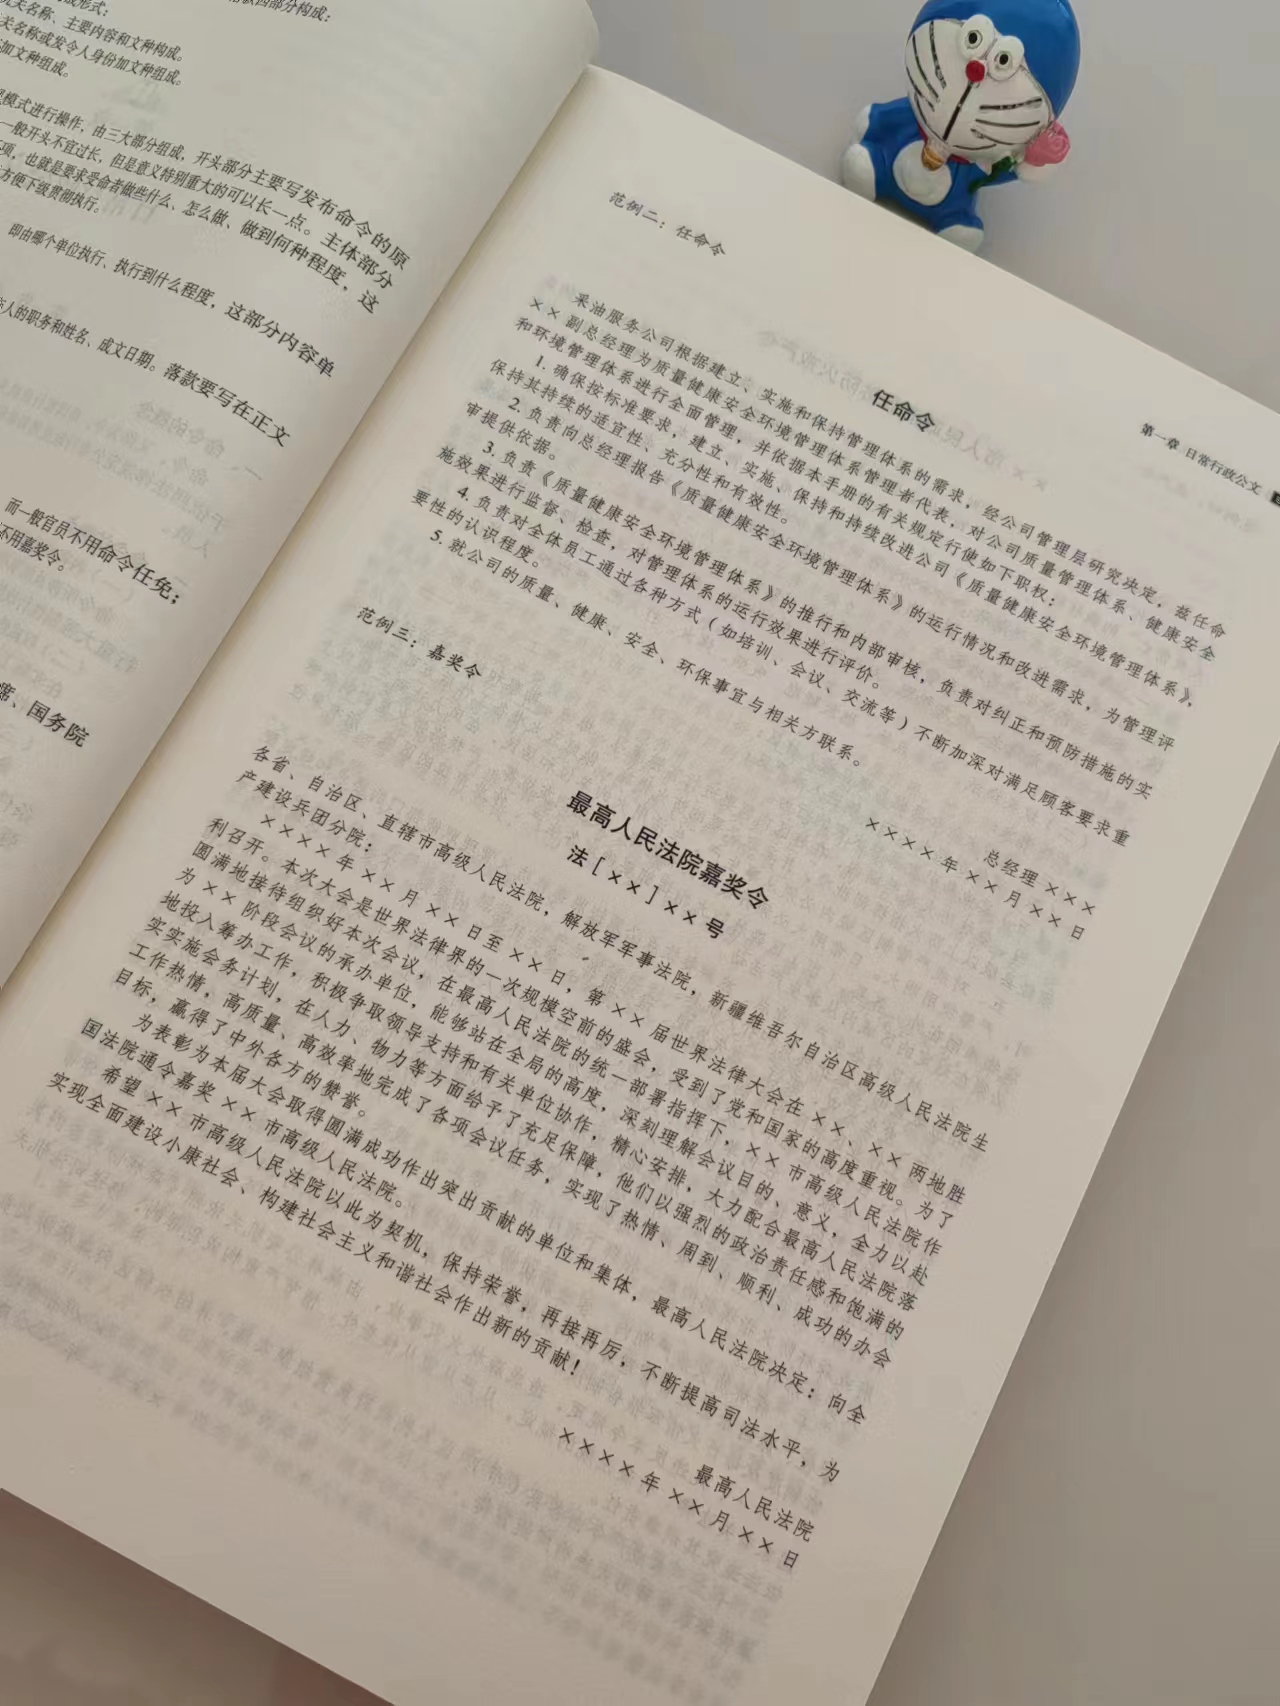 款四部分构成：
成形式：
机关名称、主要内容和文种构成。
关名称或发令人身份加文种组成。
加文种组成。
模式进行操作，由三大部分组成，开头部分主要写发布命令的原
一般开头不宜过长，但是意义特别重大的可以长一点。主体部分
项，也就是要求受命者做些什么、怎么做、做到何种程度，这
方便下级贯彻执行。
即由哪个单位执行、执行到什么程度，这部分内容单
人的职务和姓名、成文日期。落款要写在正文
而一般官员不用命令任免；
不用嘉奖令。
席、国务院
第一章 日常行政公文
范例二：任命令
任命令
采油服务公司根据建立、实施和保持管理体系的需求，经公司管理层研究决定，兹任命
××副总经理为质量健康安全环境管理体系管理者代表，对公司质量管理体系、健康安全
和环境管理体系进行全面管理，并依据本手册的有关规定行使如下职权：
1. 确保按标准要求，建立、实施、保持和持续改进公司《质量健康安全环境管理体系》，
保持其持续的适宜性、充分性和有效性。
2. 负责向总经理报告《质量健康安全环境管理体系》的运行情况和改进需求，为管理评
审提供依据。
3. 负责《质量健康安全环境管理体系》的推行和内部审核，负责对纠正和预防措施的实
施效果进行监督、检查，对管理体系的运行效果进行评价。
4. 负责对全体员工通过各种方式（如培训、会议、交流等）不断加深对满足顾客要求重
要性的认识程度。
5. 就公司的质量、健康、安全、环保事宜与相关方联系。
总经理×××
××××年××月××日
范例三：嘉奖令
最高人民法院嘉奖令
法［××］××号
各省、自治区、直辖市高级人民法院，解放军军事法院，新疆维吾尔自治区高级人民法院生
产建设兵团分院：
××××年××月××日至××日，第××届世界法律大会在××、××两地胜
利召开。本次大会是世界法律界的一次规模空前的盛会，受到了党和国家的高度重视。为了
圆满地接待组织好本次会议，在最高人民法院的统一部署指挥下，××市高级人民法院作
为××阶段会议的承办单位，能够站在全局的高度，深刻理解会议目的、意义，全力以赴
地投入筹办工作，积极争取领导支持和有关单位协作，精心安排，大力配合最高人民法院落
实实施会务计划，在人力、物力等方面给予了充足保障，他们以强烈的政治责任感和饱满的
工作热情，高质量、高效率地完成了各项会议任务，实现了热情、周到、顺利、成功的办会
目标，赢得了中外各方的赞誉。
为表彰为本届大会取得圆满成功作出突出贡献的单位和集体，最高人民法院决定：向全
国法院通令嘉奖××市高级人民法院。
希望××市高级人民法院以此为契机，保持荣誉，再接再厉，不断提高司法水平，为
实现全面建设小康社会、构建社会主义和谐社会作出新的贡献！
最高人民法院
××××年××月××日